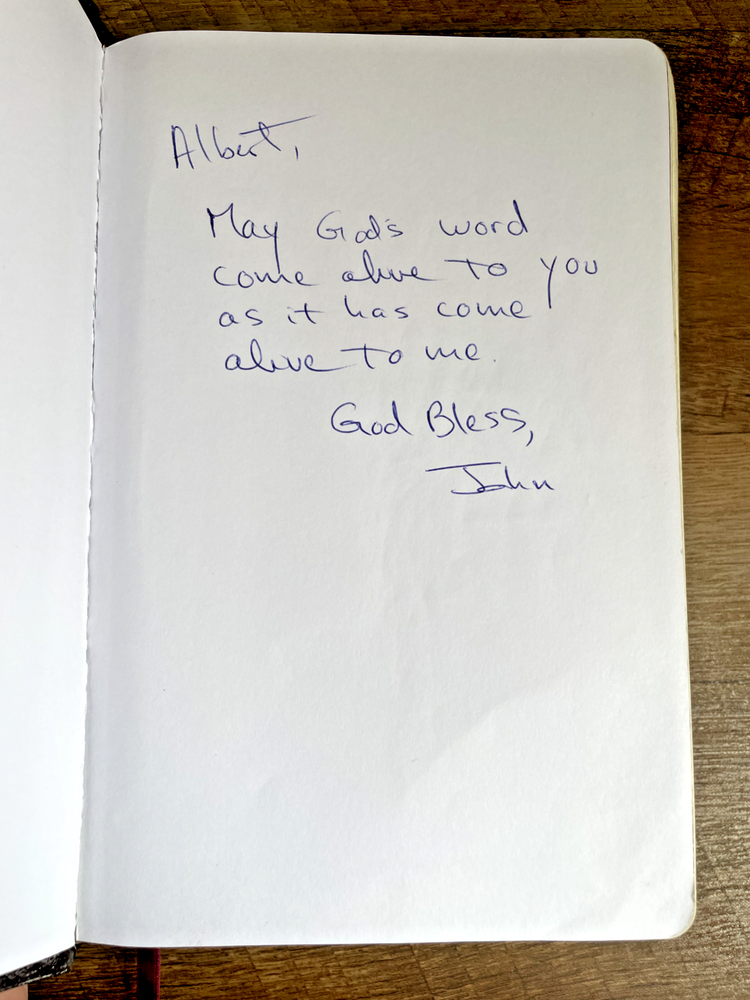 Albert,
May God's word
come alive to you
as it has come
alive to me.
God Bless,
John